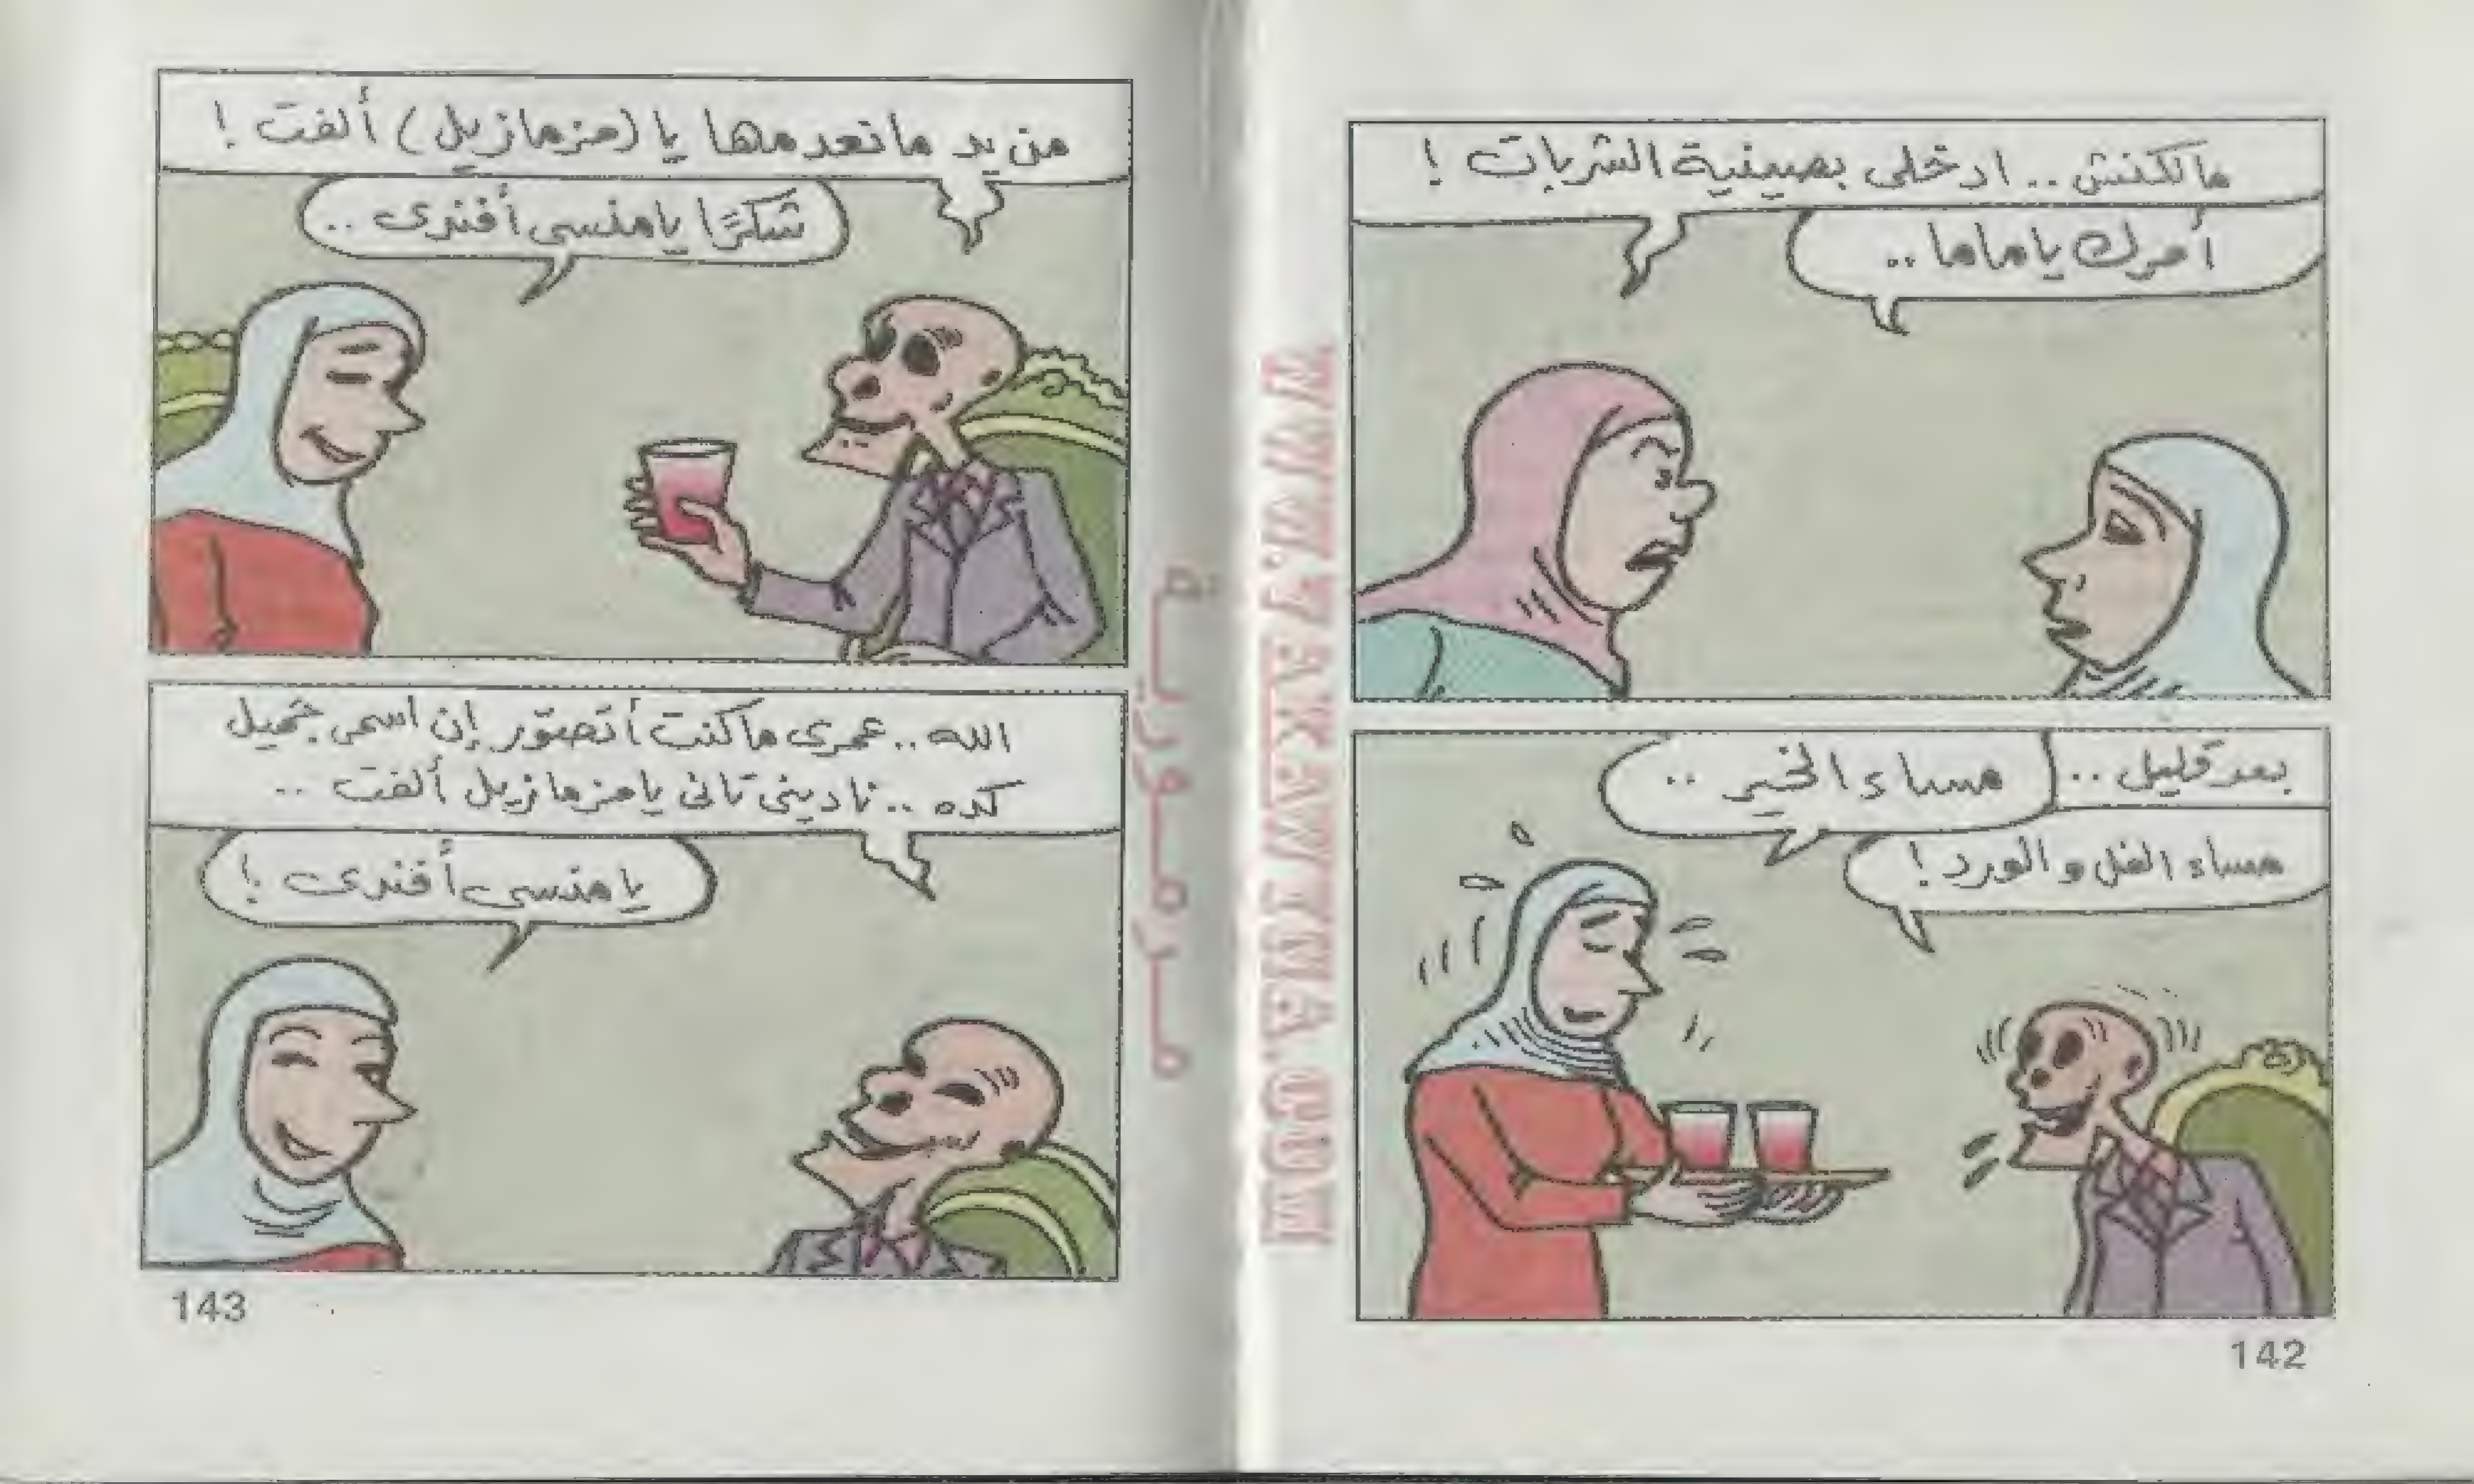 مالكنش.. ادخلى بصينية الشربات !
أمرك ياماما..
بعد قليل..
مساء الخير..
مساء الفل والورد !
142
من يد مانعدمها يا (مزمازيل) ألفت !
شكرًا يامنسى أفندى..
الله.. عمرى ماكنت أتصوّر إن اسمى جميل
كده.. نادينى تانى يامزمازيل ألفت..
يامنسى أفندى !
143
مرمورية